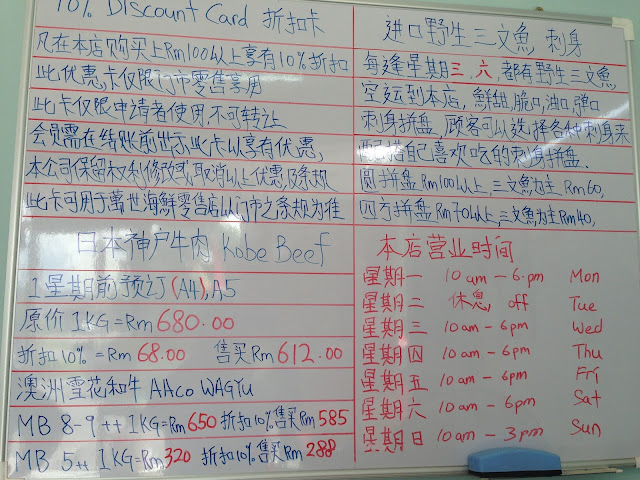 10% Discount Card 折扣卡
凡在本店购买上Rm100以上享有10%折扣
此优惠卡仅限门市零售享用
此卡仅限申请者使用,不可转让
会员需在结账前出示此卡以享有优惠,
本公司保留权利修改或取消以上优惠及条规
此卡可用于萬世海鮮零售店以门市之条规为准
日本神户牛肉 Kobe Beef
1星期前预订(A4),A5
原价 1KG=Rm 680.00
折扣10% = Rm 68.00 售买Rm 612.00
澳洲雪花和牛 AAco WAGYU
MB 8-9++ 1KG=Rm 650 折扣10%售买Rm 585
MB 5++ 1KG=Rm 320 折扣10%售买Rm 288
进口野生三文魚 刺身
每逢星期三、六,都有野生三文魚
空运到本店,鮮甜,脆口,油口,弹口
刺身拼盘,顾客可以选择各种刺身来
自己喜欢吃的刺身拼盘.
圆拼盘Rm100以上,三文魚为主 Rm60,
四方拼盘Rm70以上,三文魚为主Rm40,
本店营业时间
星期一 10am - 6.pm Mon
星期二 休息 off Tue
星期三 10am - 6pm Wed
星期四 10am - 6pm Thu
星期五 10am - 6pm Fri
星期六 10am - 6pm Sat
星期日 10am - 3pm Sun